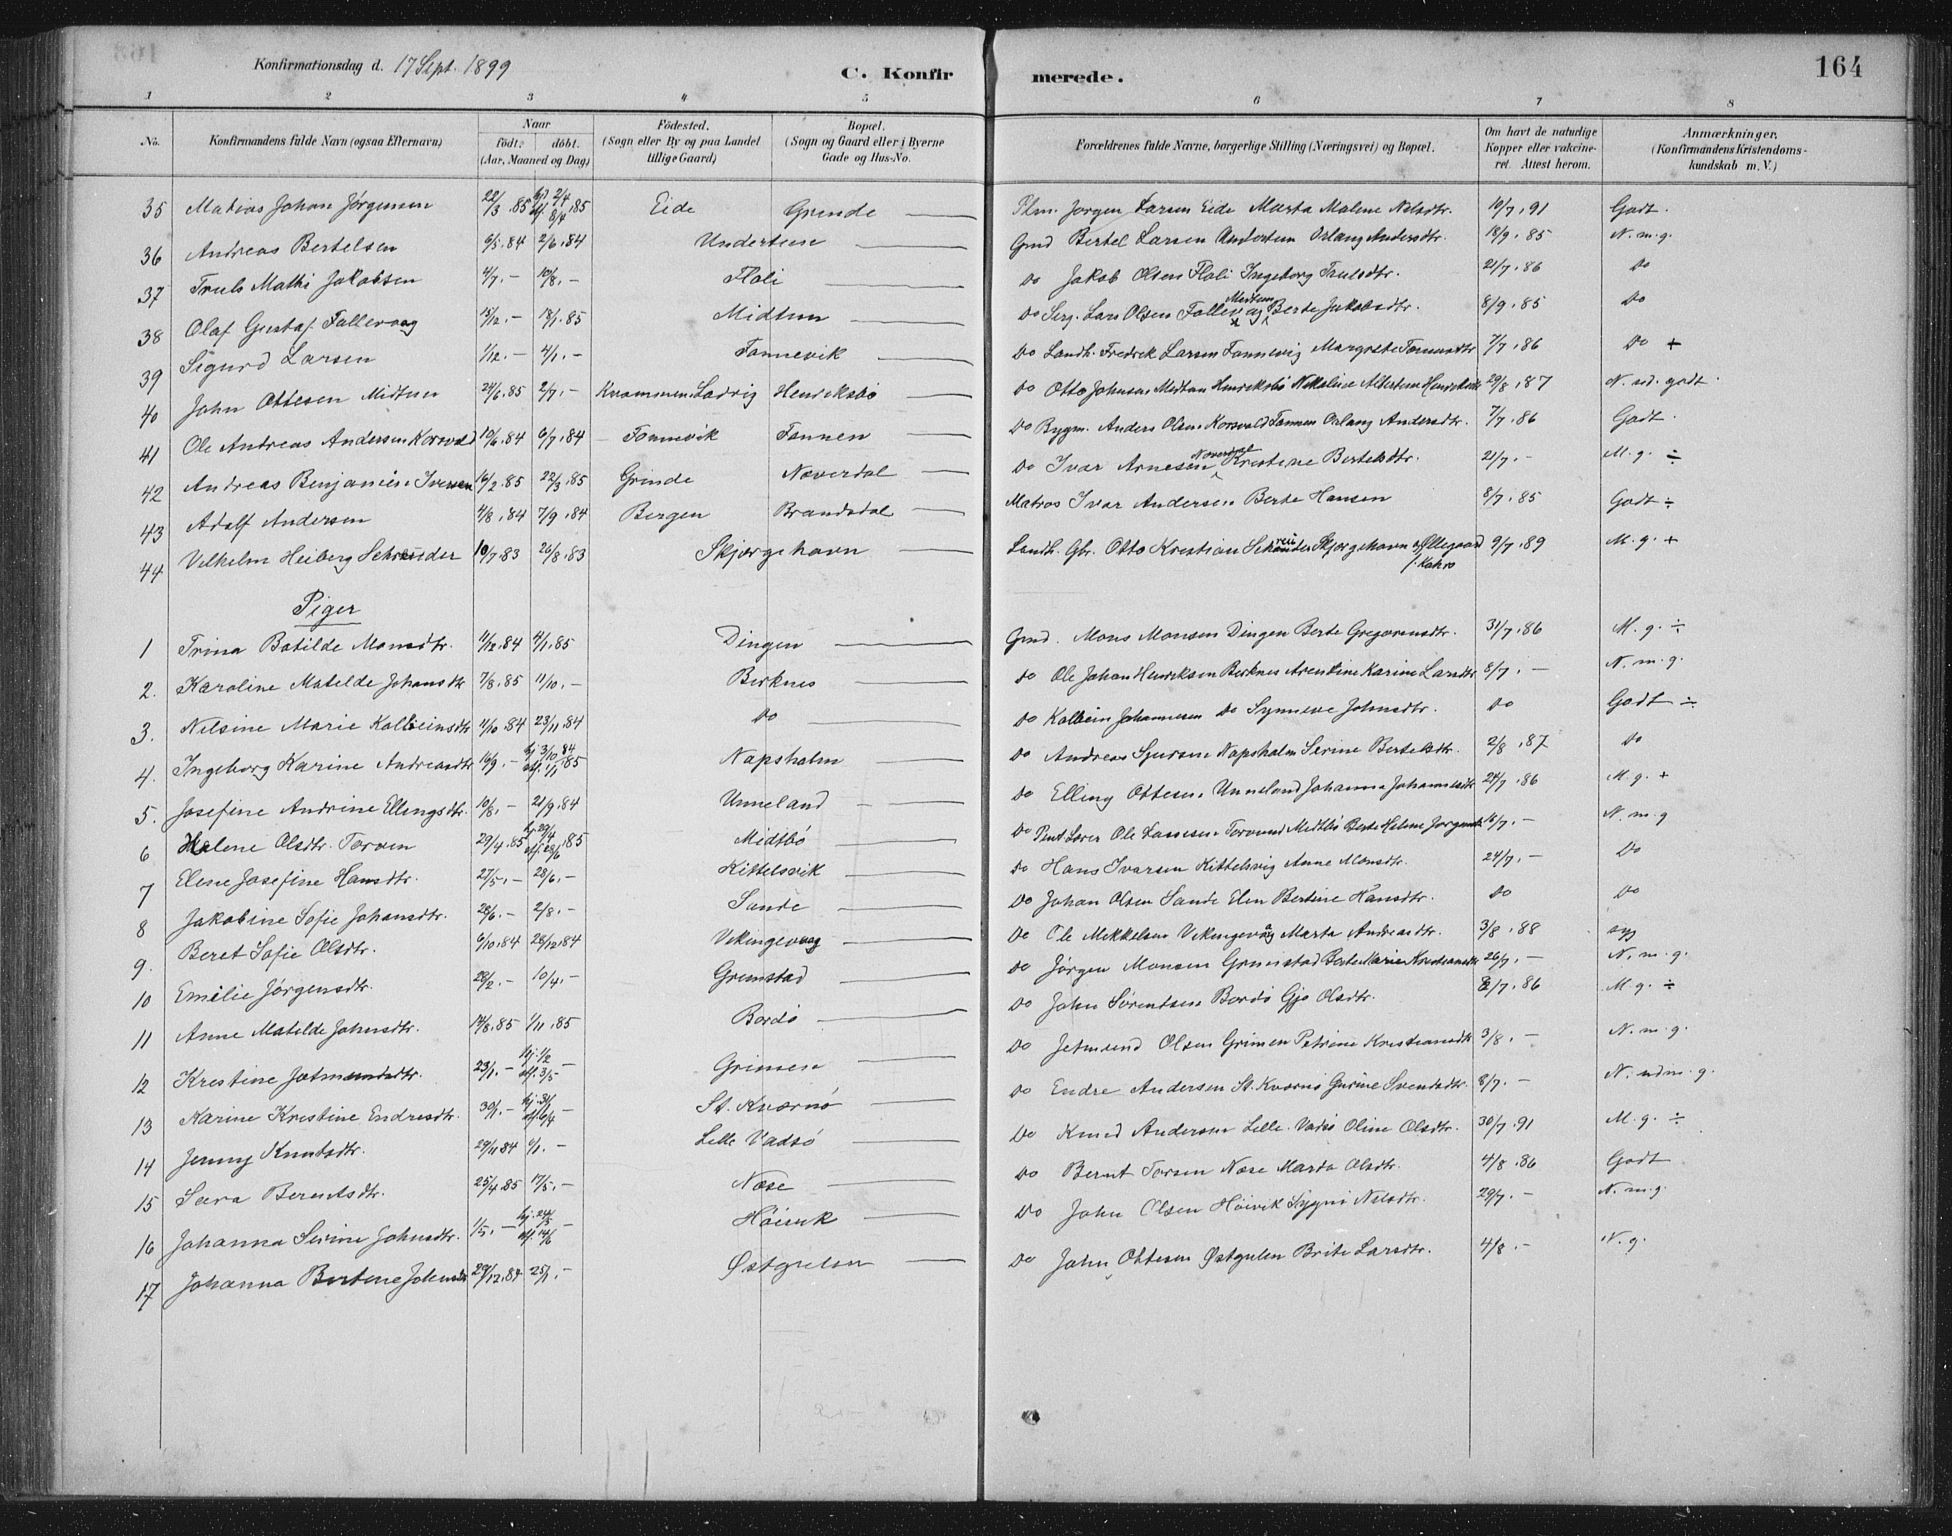 Konfirmationsdag d. 17 Sept. 1899
C. Konfirmerede.
164
1 2 3 4 5 6 7 8
No.
Konfirmandens fulde Navn (ogsaa Efternavn)
Naar
födt: döbt.
(Aar, Maaned og Dag)
Födested.
(Sogn eller By og paa Landet tillige Gaard)
Bopæl.
(Sogn og Gaard eller i Byerne Gade og Hus-No.
Forældrenes fulde Navne, borgerlige Stilling (Næringsvei) og Bopæl.
Om havt de naturlige Kopper eller vakcineret. Attest herom.
Anmærkninger.
(Konfirmandens Kristendomskundskab m. V.)
35 Matias Johan Jørgensen 22/3.85 hj. 2/4 stf. 8/4.85 Eide Grende — Jørgen Larsen Eide Marta Malene Nilsdtr. 10/7.91 Godt.
36 Andreas Bertelsen 6/5.84 2/6.84 Undertun — Gmd Bertel Larsen Undertun Orlaug Andersdtr. 18/9.85 N.m.g.
37 Truls Mathi Jakobsen 4/7.- 10/8.- Floli — do Jakob Olsen Floli Ingeborg Trulsdtr. 21/7.86 do
38 Olaf Gustaf Follevaag 15/12.- 18/1.85 Midtun — do Serg. Lars Olsen Follevaag Midtun Berte Jakobsdtr. 8/9.85 do
39 Sigurd Larsen 1/12.- 4/1.- Tonnevik — do Landh. Fredrik Larsen Tonnevig Margrete Tomasdtr 7/7.86 do +
40 John Ottesen Midtun 24/6.85 2/7.- Kvammen, Ladvig Henriksbø — do Otto Johnsen Midtun Henriksbø Nikoline Albertine Henriksdtr 29/8.87 N. ud. godt.
41 Ole Andreas Andersen Korsvold 10/6.84 6/7.84 Tonnevik Tonnen — do Bygm. Anders Olsen Korsvold Tonnen Orlaug Andersdtr. 7/7.86 Godt
42 Andreas Benjamin Iversen 16/2.85 22/3.85 Grinde Nøverdal — do Ivar Arnesen Nøverdal Kristine Bertelsdtr. 21/7.- M.g. ÷
43 Adolf Andersen 4/8.84 7/9.84 Bergen Brandsdal — Matros Ivar Andersen Berte Hansen 8/7.85 Godt ÷
44 Vilhelm Heiberg Schreuder 10/7.83 26/8.83 Skjærgehavn — Landh. Gbr. Otto Kristian Schreuder Skjærgehavn og Øllegaard f. Kahrs 9/7.89 M.g. +
Piger
1 Trina Botilde Monsdtr. 11/12.84 4/1.85 Dingen — Gmd. Mons Monsen Dingen Berte Gregoriusdtr. 31/7.86 M.g. ÷
2. Karoline Matilde Johansdtr 7/8.85 11/10.- Birknes — do Ole Johan Henriksen Birknes Arentine Karine Larsdtr 8/7.- N.m.g.
3. Nilsine Marie Kolbeinsdtr 11/10.84 23/11.84 do — do Kolbein Johannesen do Synneve Johnsdtr. do Godt ÷
4. Ingeborg Karine Andreasdtr 16/9.- hj. 3/10 84 stf. 1/1 85 Napsholm — do Andreas Sjursen Napsholm Serine Bertelsdtr. 2/8.87 do
5. Josefine Andrine Ellingsdtr. 10/8.- 21/9.84 Unneland — do Elling Ottesen Unneland Johanna Johannesdtr 24/7.86 M.g. +
6 Helene Olsdtr. Torven 29/4.85 hj. 29/4 stf. 28/6.85 Midtbø — do Pent. Lærer Ole Lassesen Torvund Midtbø Berte Helene Jørgensdtr 16/7.- N.m.g
7 Elene Josefine Hansdtr. 27/5.- 28/6.- Kittelsvik — do Hans Ivarsen Kittelsvig Anne Monsdtr. 24/7.- do
8 Jakobine Sofie Johansdtr. 28/6.- 2/8.- Sande — do Johan Olsen Sande Elen Bertine Hansdtr. do do
9. Beret Sofie Olsdtr. 6/10.84 28/12.84 Vikingevaag — do Ole Mikkelsen Vikingevåg Marta Andreasdtr. 3/8.88 syg
10 Emilie Jørgensdtr. 28/2.- 10/4.- Grimstad — do Jørgen Monsen Grimstad Berte Marie Kristiansdtr 26/7.- N.m.g.
11 Anne Matilde Johnsdtr. 14/8.85 1/11.85 Bordø — do John Sørentsen Bordø Gjo Olsdtr. 2/7.86 M.g. ÷
12 Kristine Jetmundsdtr. 23/1.- hj. 1/2 stf. 3/5 - Grimen — do Jetmund Olsen Grimen Petrine Kristiansdtr 3/8.- N.m.g.
13 Karine Kristine Endresdtr. 30/1.- hj. 31/1 stf. 6/4 - St. Kværnø — do Endre Andersen St. Kværnø Gurine Svendsdtr. 8/7.- N. udm. g.
14 Jenny Knutsdtr. 29/11.84 1/1.- Lille Vadsø — do Knud Andersen Lille Vadsø Oline Olsdtr. 30/7.91 M.g. ÷
15 Sara Berntsdtr. 25/4.85 17/5.- Næse — do Bernt Torsen Næse Marta Olsdtr. 4/8.86 Godt
16 Johanna Serine Johnsdtr. 1/5.- hj. 24/5 stf. 14/6 - Höivik — do John Olsen Höivik Sygni Nilsdtr. 29/7.- N.m.g.
17 Johanna Bertine Johnsdtr 29/12.84 25/1.- Østgulen — do John Ottesen Østgulen Brite Larsdtr. 4/8.- N.g.